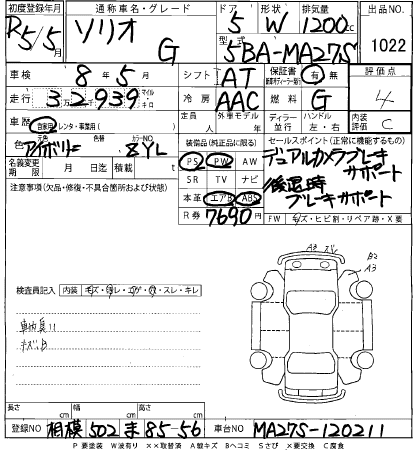 初度登録年月 通称車名・グレード ドア 形状 排気量 出品NO
R5/5 ソリオ G 5 W 1200cc 1022
型式 5BA-MA27S
車検 8年5月 シフト AT 保証書 有 無 評価点
走行 32939 マイル キロ 冷房 AAC 燃料 G 4
車歴 自家用・レンタ・事業用( ) 定員 人 外車モデル 年 ディーラー 並行 ハンドル 左・右 内装評価 C
色 アイボリー カラーNO ZYL 装備品(純正品に限る) セールスポイント(正常に機能するもの)
名義変更期限 月 日迄 積載 PS PW AW デュアルカメラブレーキ
サポート
注意事項(欠品・修復・不具合箇所および状態) SR TV ナビ 後退時
本革 エアB ABS ブレーキサポート
R券 7690円 FW 無・キズ・ヒビ割・リペア跡・X要
A3 B2
A3
検査員記入 内装 キズ・汚レ・コゲ・穴・スレ・キレ
キズ小
長さ cm 幅 cm 高さ cm
登録NO 相模 502 ま 85-56 車台NO MA27S-120211
P 要塗装 W波有り ××取替済 A線キズ Bヘコミ Sさび ×要交換 C腐食